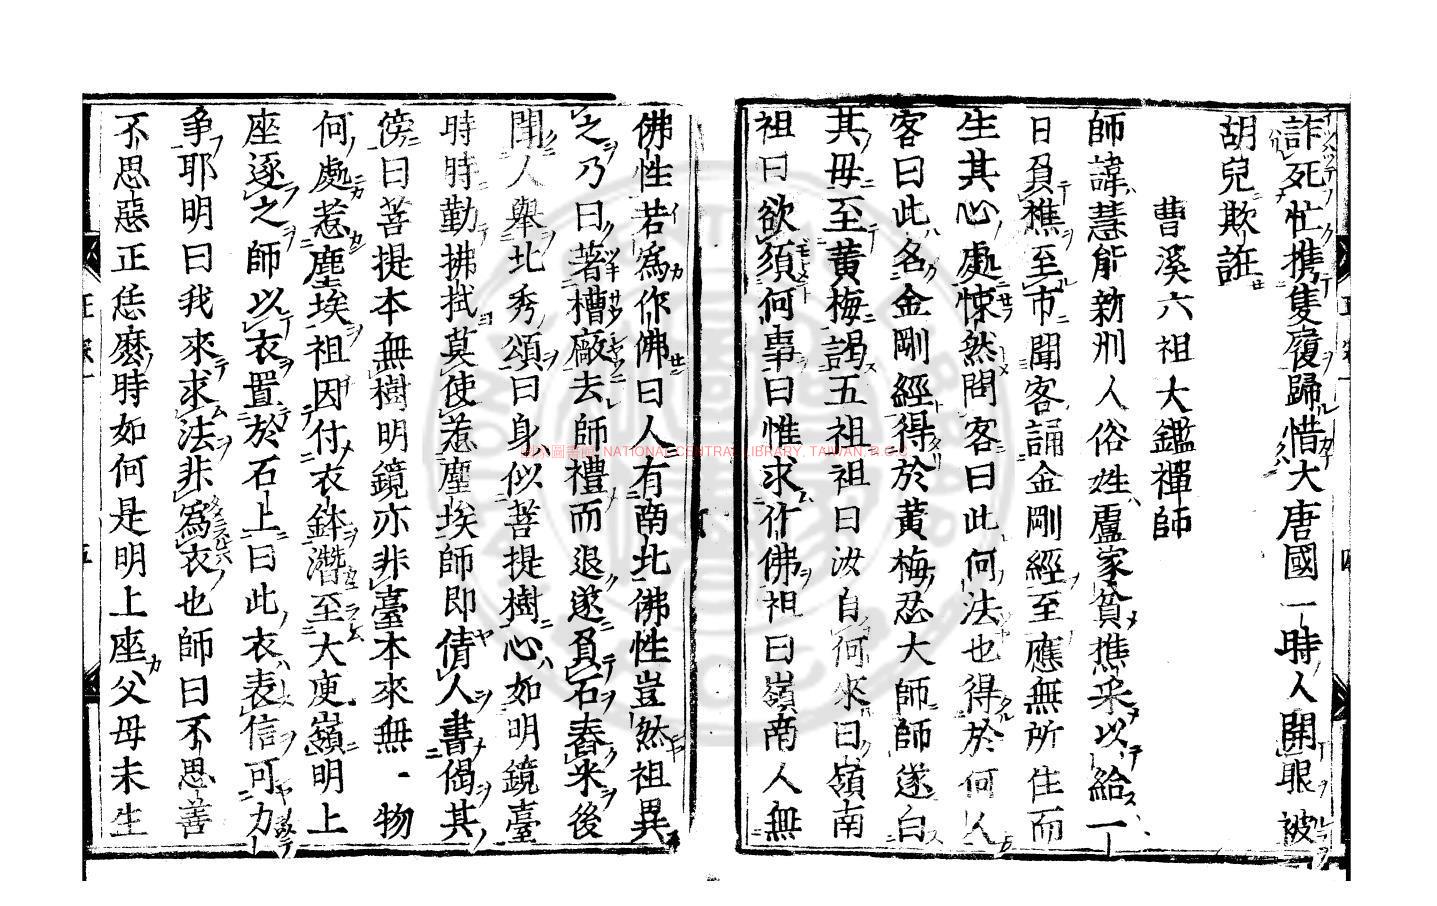 詐死忙携隻履歸惜大唐國一時人開眼被
胡兒欺誑
曹溪六祖大鑑禪師
師諱慧能新州人俗姓盧家貧樵采以給一
日負樵至市聞客誦金剛經至應無所住而
生其心處悚然問客曰此何法也得於何人
客曰此名金剛經得於黃梅忍大師師遂白
其母至黃梅謁五祖祖曰汝自何來曰嶺南
祖曰欲須何事曰惟求作佛祖曰嶺南人無
佛性若爲作佛曰人有南北佛性豈然祖異
之乃曰著槽廠去師禮而退遂負石舂米後
聞人舉北秀頌曰身似菩提樹心如明鏡臺
時時勤拂拭莫使惹塵埃師即倩人書偈其
傍曰菩提本無樹明鏡亦非臺本來無一物
何處惹塵埃祖因付衣鉢潛至大庾嶺明上
座逐之師以衣置於石上曰此衣表信可力
爭耶明曰我來求法非爲衣也師曰不思善
不思惡正恁麽時如何是明上座父母未生
國家圖書館, NATIONAL CENTRAL LIBRARY, TAIWAN, R.O.C